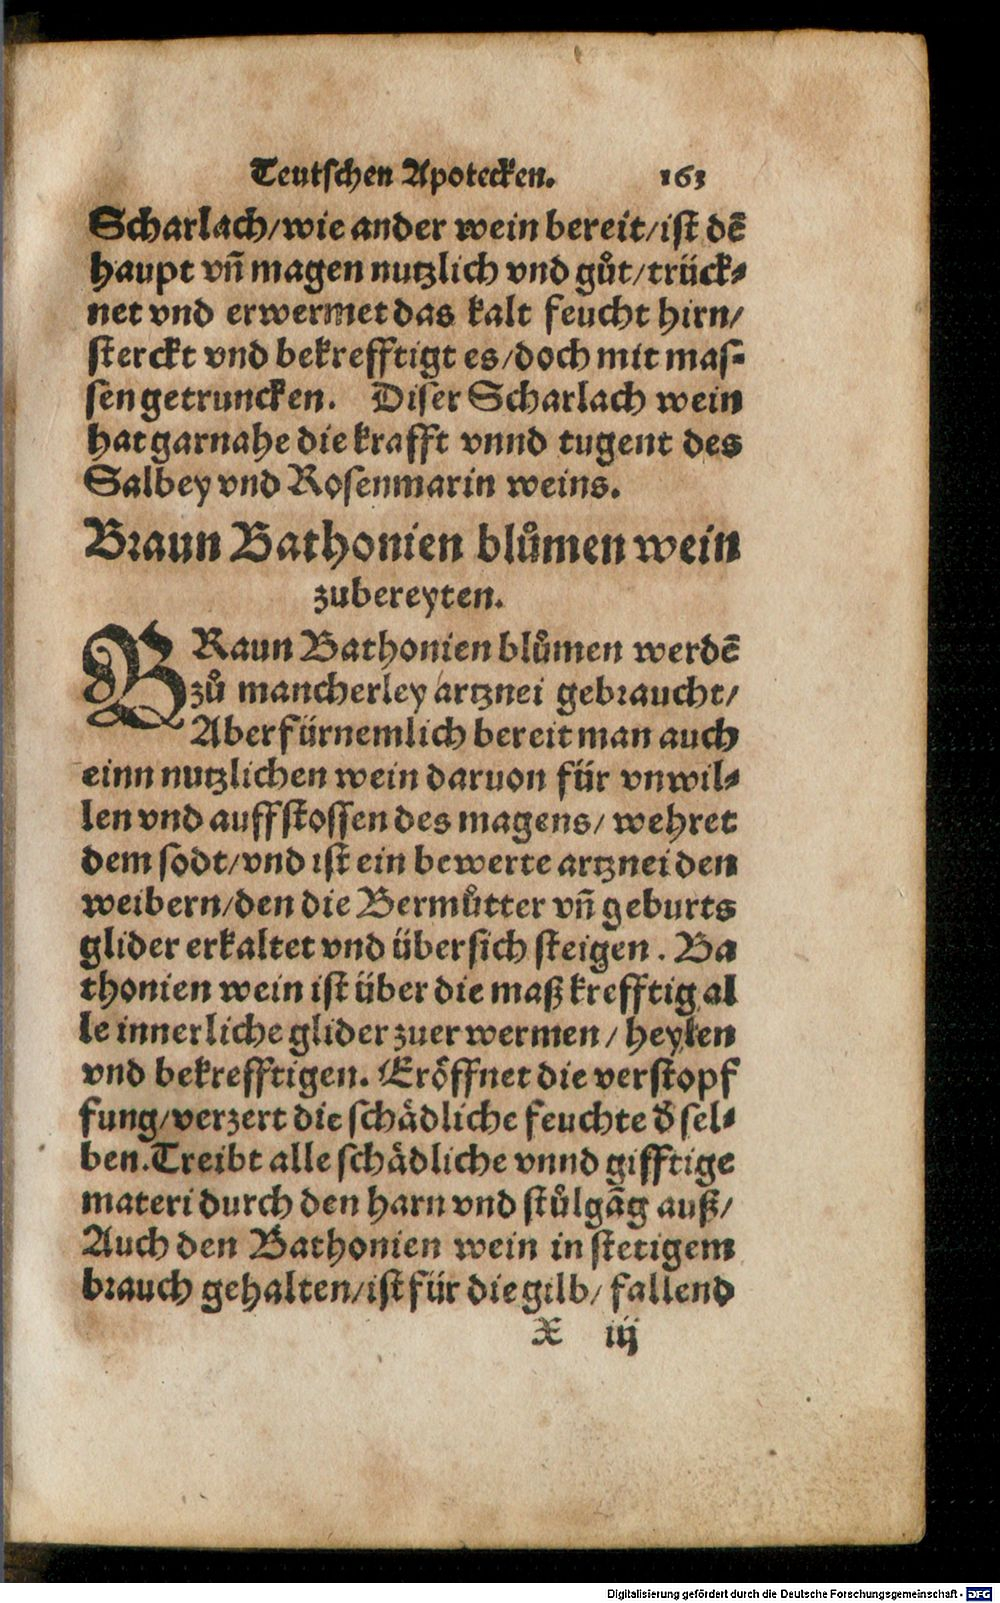 Teutschen Apotecken. 163
Scharlach/wie ander wein bereit/ist dē
haupt vn̄ magen nutzlich vnd gůt/trück⸗
net vnd erwermet das kalt feucht hirn/
sterckt vnd bekrefftigt es/doch mit mas⸗
sen getruncken. Diser Scharlach wein
hat garnahe die krafft vnnd tugent des
Salbey vnd Rosenmarin weins.
Braun Bathonien blůmen wein
zubereyten.
BRaun Bathonien blůmen werdē
zů mancherley artznei gebraucht/
Aber fürnemlich bereit man auch
einn nutzlichen wein daruon für vnwil⸗
len vnd auffstossen des magens/ wehret
dem sodt/vnd ist ein bewerte artznei den
weibern/den die Bermůtter vn̄ geburts
glider erkaltet vnd über sich steigen. Ba
thonien wein ist über die maß krefftig al
le innerliche glider zuerwermen/ heylen
vnd bekrefftigen. Eröffnet die verstopf
fung/verzert die schädliche feuchte d̕ sel⸗
ben. Treibt alle schädliche vnnd gifftige
materi durch den harn vnd stůlgāg auß/
Auch den Bathonien wein in stetigem
brauch gehalten/ist für die gilb/ fallend
X iij
Digitalisierung gefördert durch die Deutsche Forschungsgemeinschaft - DFG